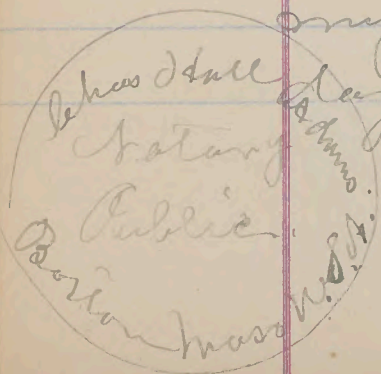 Chas Hall Adams.
Notary
Public.
Boston Mass U.S.A.
my
day